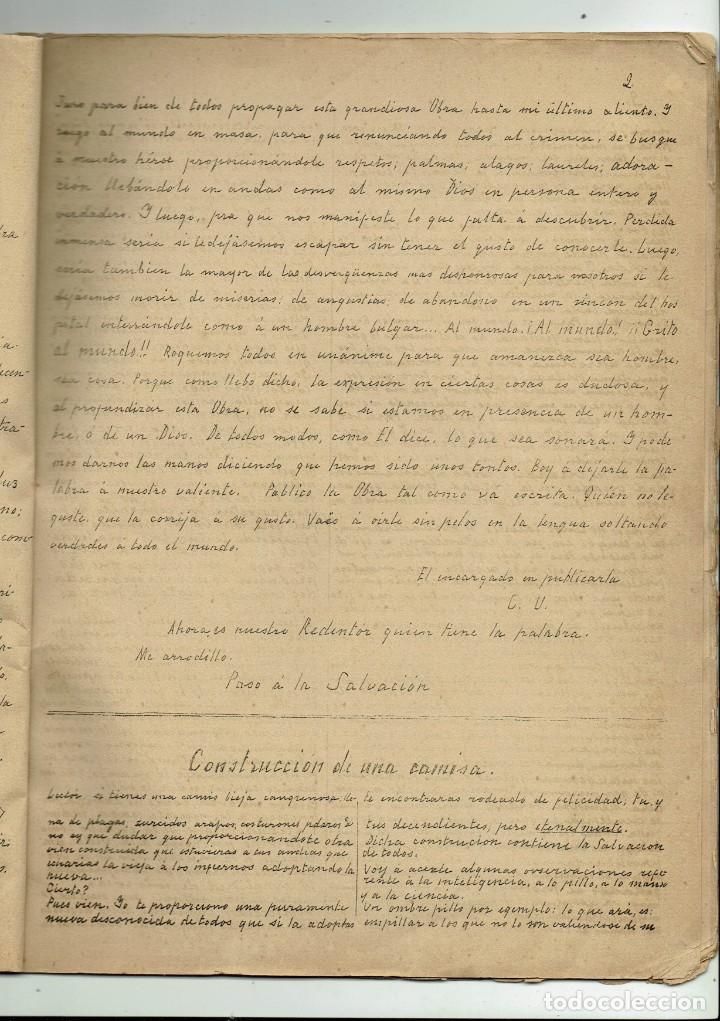 2
Juro para bien de todos propagar esta grandiosa Obra hasta mi último aliento. Y
ruego al mundo en masa, para que renunciando todos al crimen, se busque
á nuestro héroe proporcionándole respetos; palmas; alagos; laureles; adora-
ción llebándolo en andas como al mismo Dios en persona entero y
verdadero. Y luego, pra que nos manifeste lo que falta á descubrir. Perdida
immensa seria si te dejásemos escapar sin tener el gusto de conocerte. Luego,
seria tambien la mayor de las desvergüenzas mas deshonrosas para nosotros si te
dejásemos morir de miserias; de angustias; de abandono en un rincon del hos
pital enterrándole como á un hombre bulgar... Al mundo. ¡Al mundo! ¡¡Grito
al mundo!! Roguemos todos en unánime para que amanezca sea hombre,
sea cosa. Porque como llebo dicho, la expresión en ciertas cosas es dudosa, y
al profundizar esta Obra, no se sabe si estamos en presencia de un hom-
bre, ó de un Dios. De todos modos, como El dice, lo que sea sonará. Y pode
mos darnos las manos diciendo que hemos sido unos tontos. Boy á dejarle la pa-
labra á nuestro valiente. Publico la Obra tal como va escrita. Quién no le
guste, que la corrija á su gusto. Vais á oirle sin pelos en la lengua soltando
verdades á todo el mundo.
El encargado en publicarla
C. V.
Ahora es nuestro Redentor quien tiene la palabra.
Me arrodillo.
Paso á la Salvación
Construcción de una camisa.
Lector, si tienes una camis bieja, cangrenosa; lle-
na de plagas, zurcidos arapos, costurones
no ay que dudar que proporcionandote otra
vien construida que estuvieras a tus anchas que
enviarias la vieja á los infiernos adoptando la
nueva...
Cierto?
Pues vien. Yo te proporciono una puramente
nueva desconocida de todos que si la adoptas
te encontraras rodeado de felicidad; tu, y
tus decendientes, pero etenalmente.
Dicha construcion contiene la Salvación
de todos.
Voy a acerte algunas ovservaciones refe
rente á la inteligencia, a lo pillo, a lo mano
y a la ciencia.
Un ombre pillo por egemplo: lo que ará, es:
empillar a los que no lo son valiendose de su